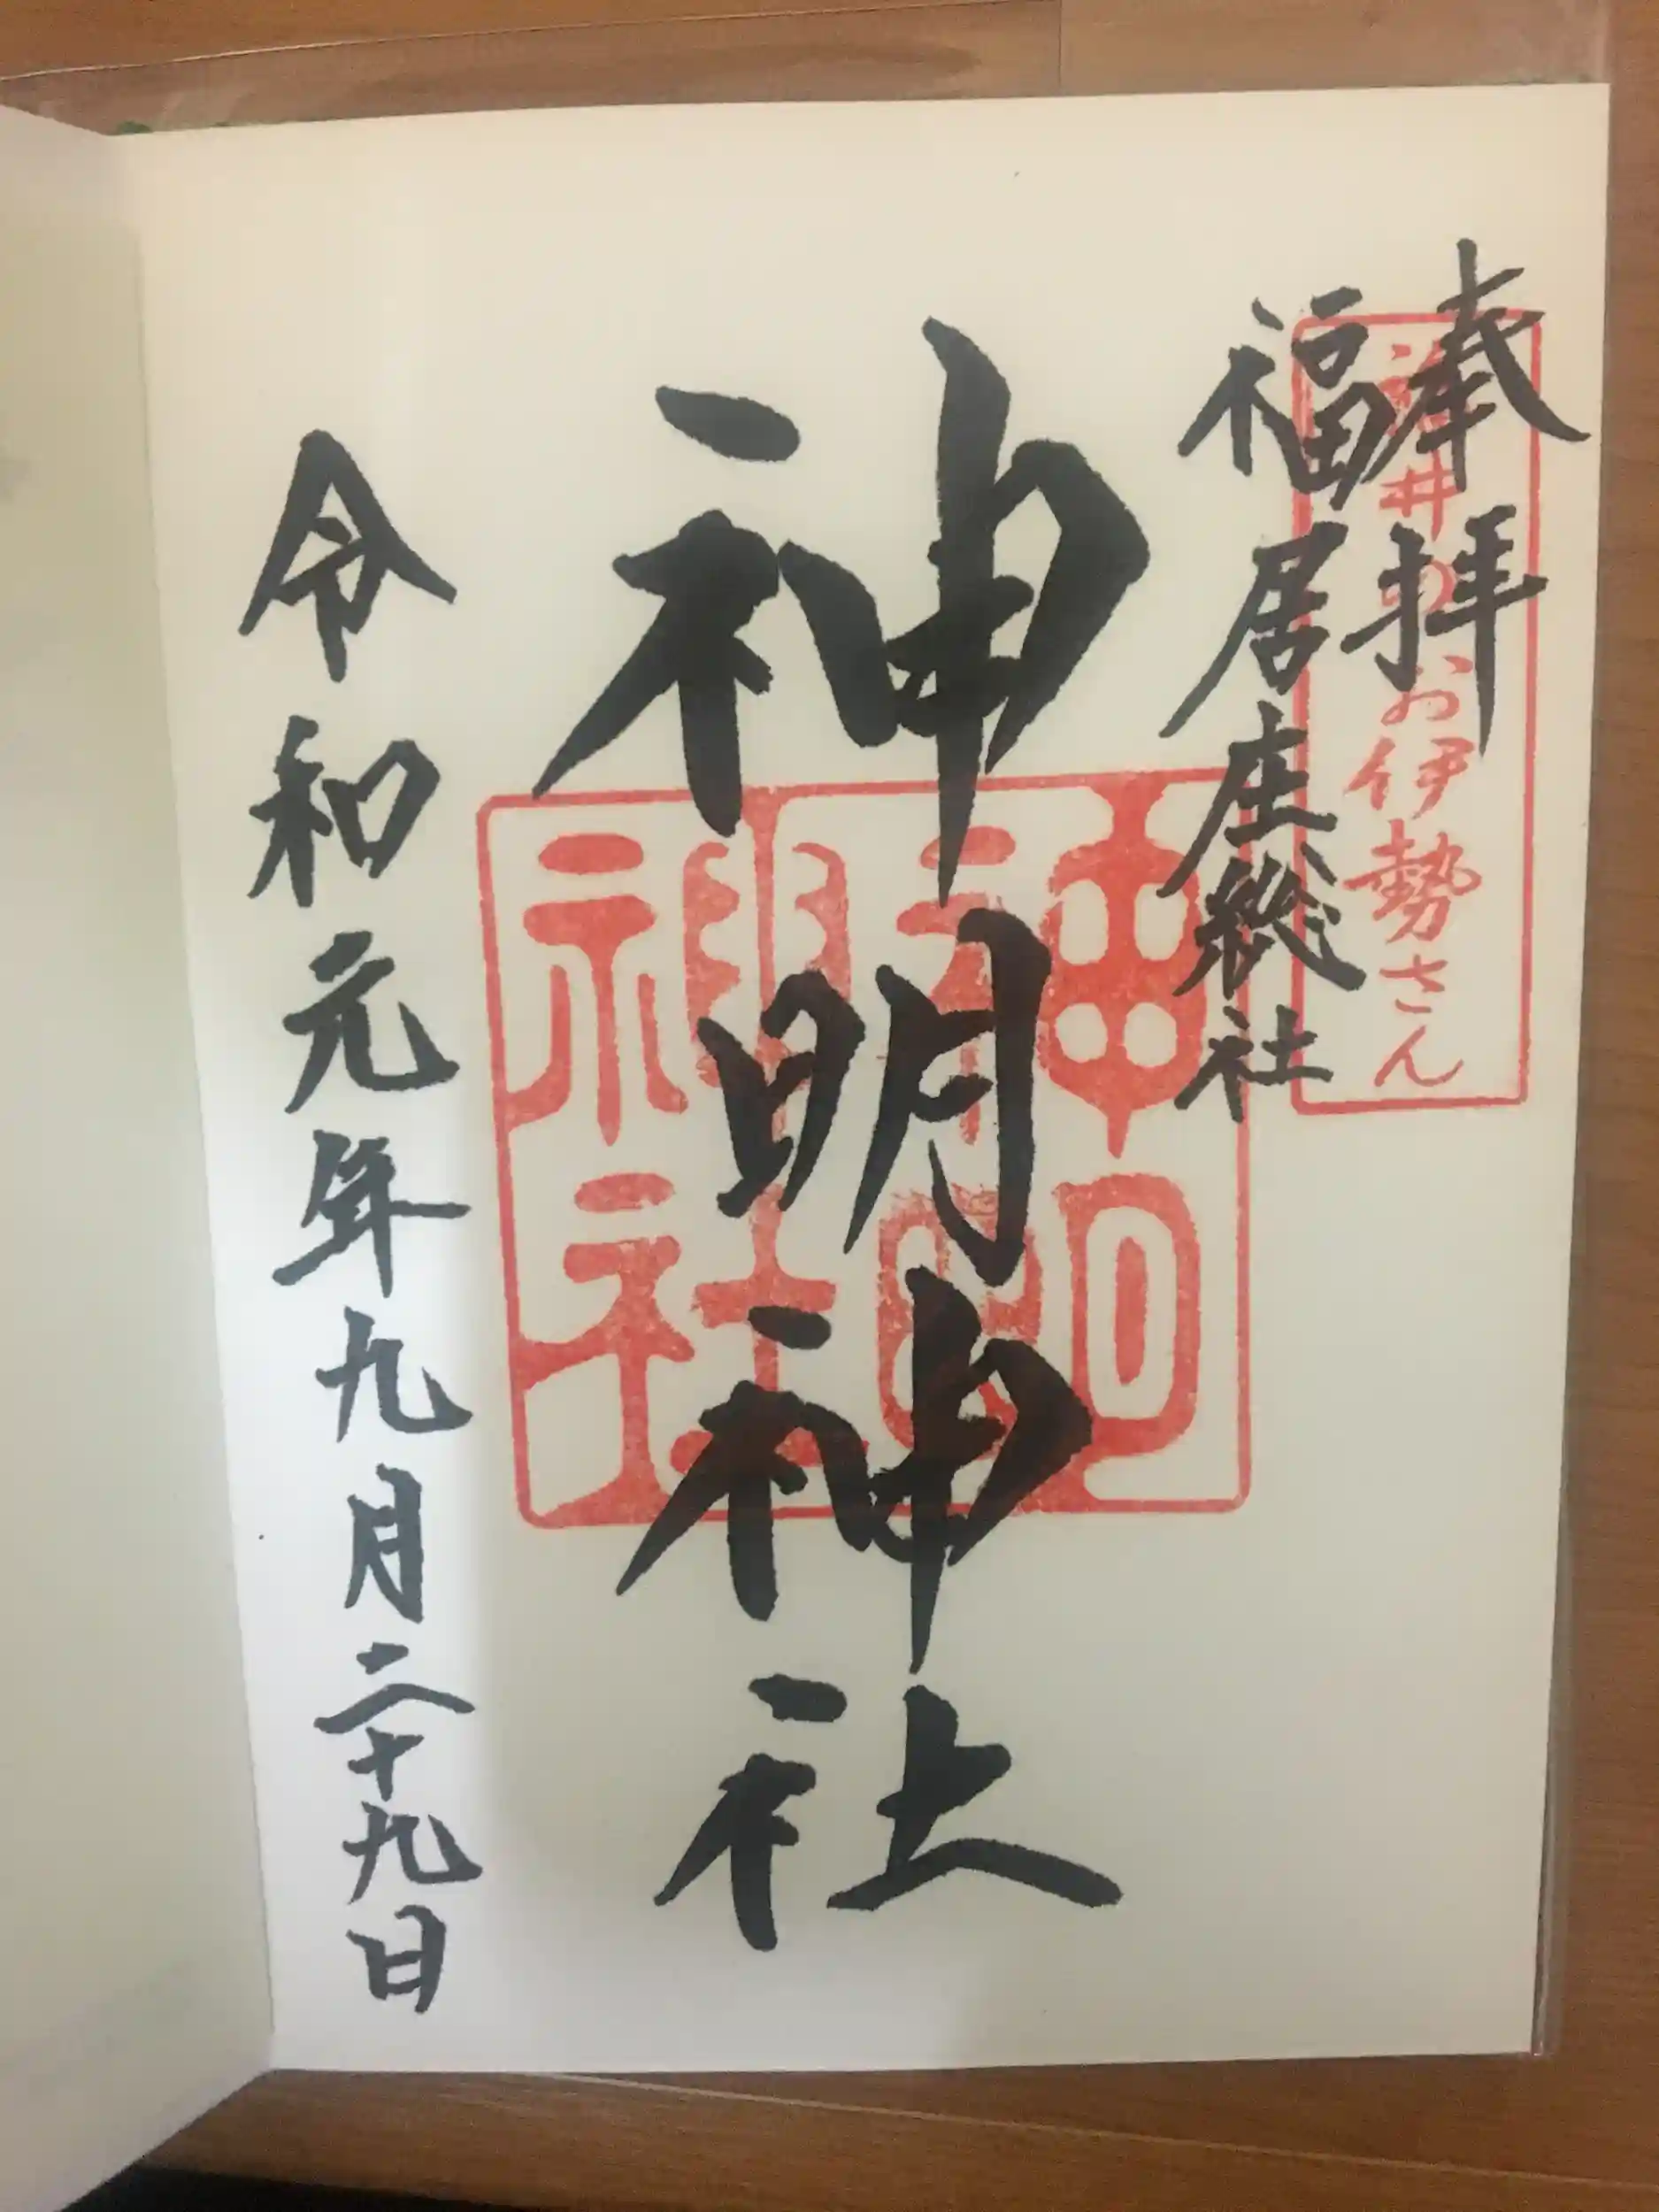 奉拝
福井のお伊勢さん
福居庄総社
神明神社
神明
神社
令和元年九月二十九日